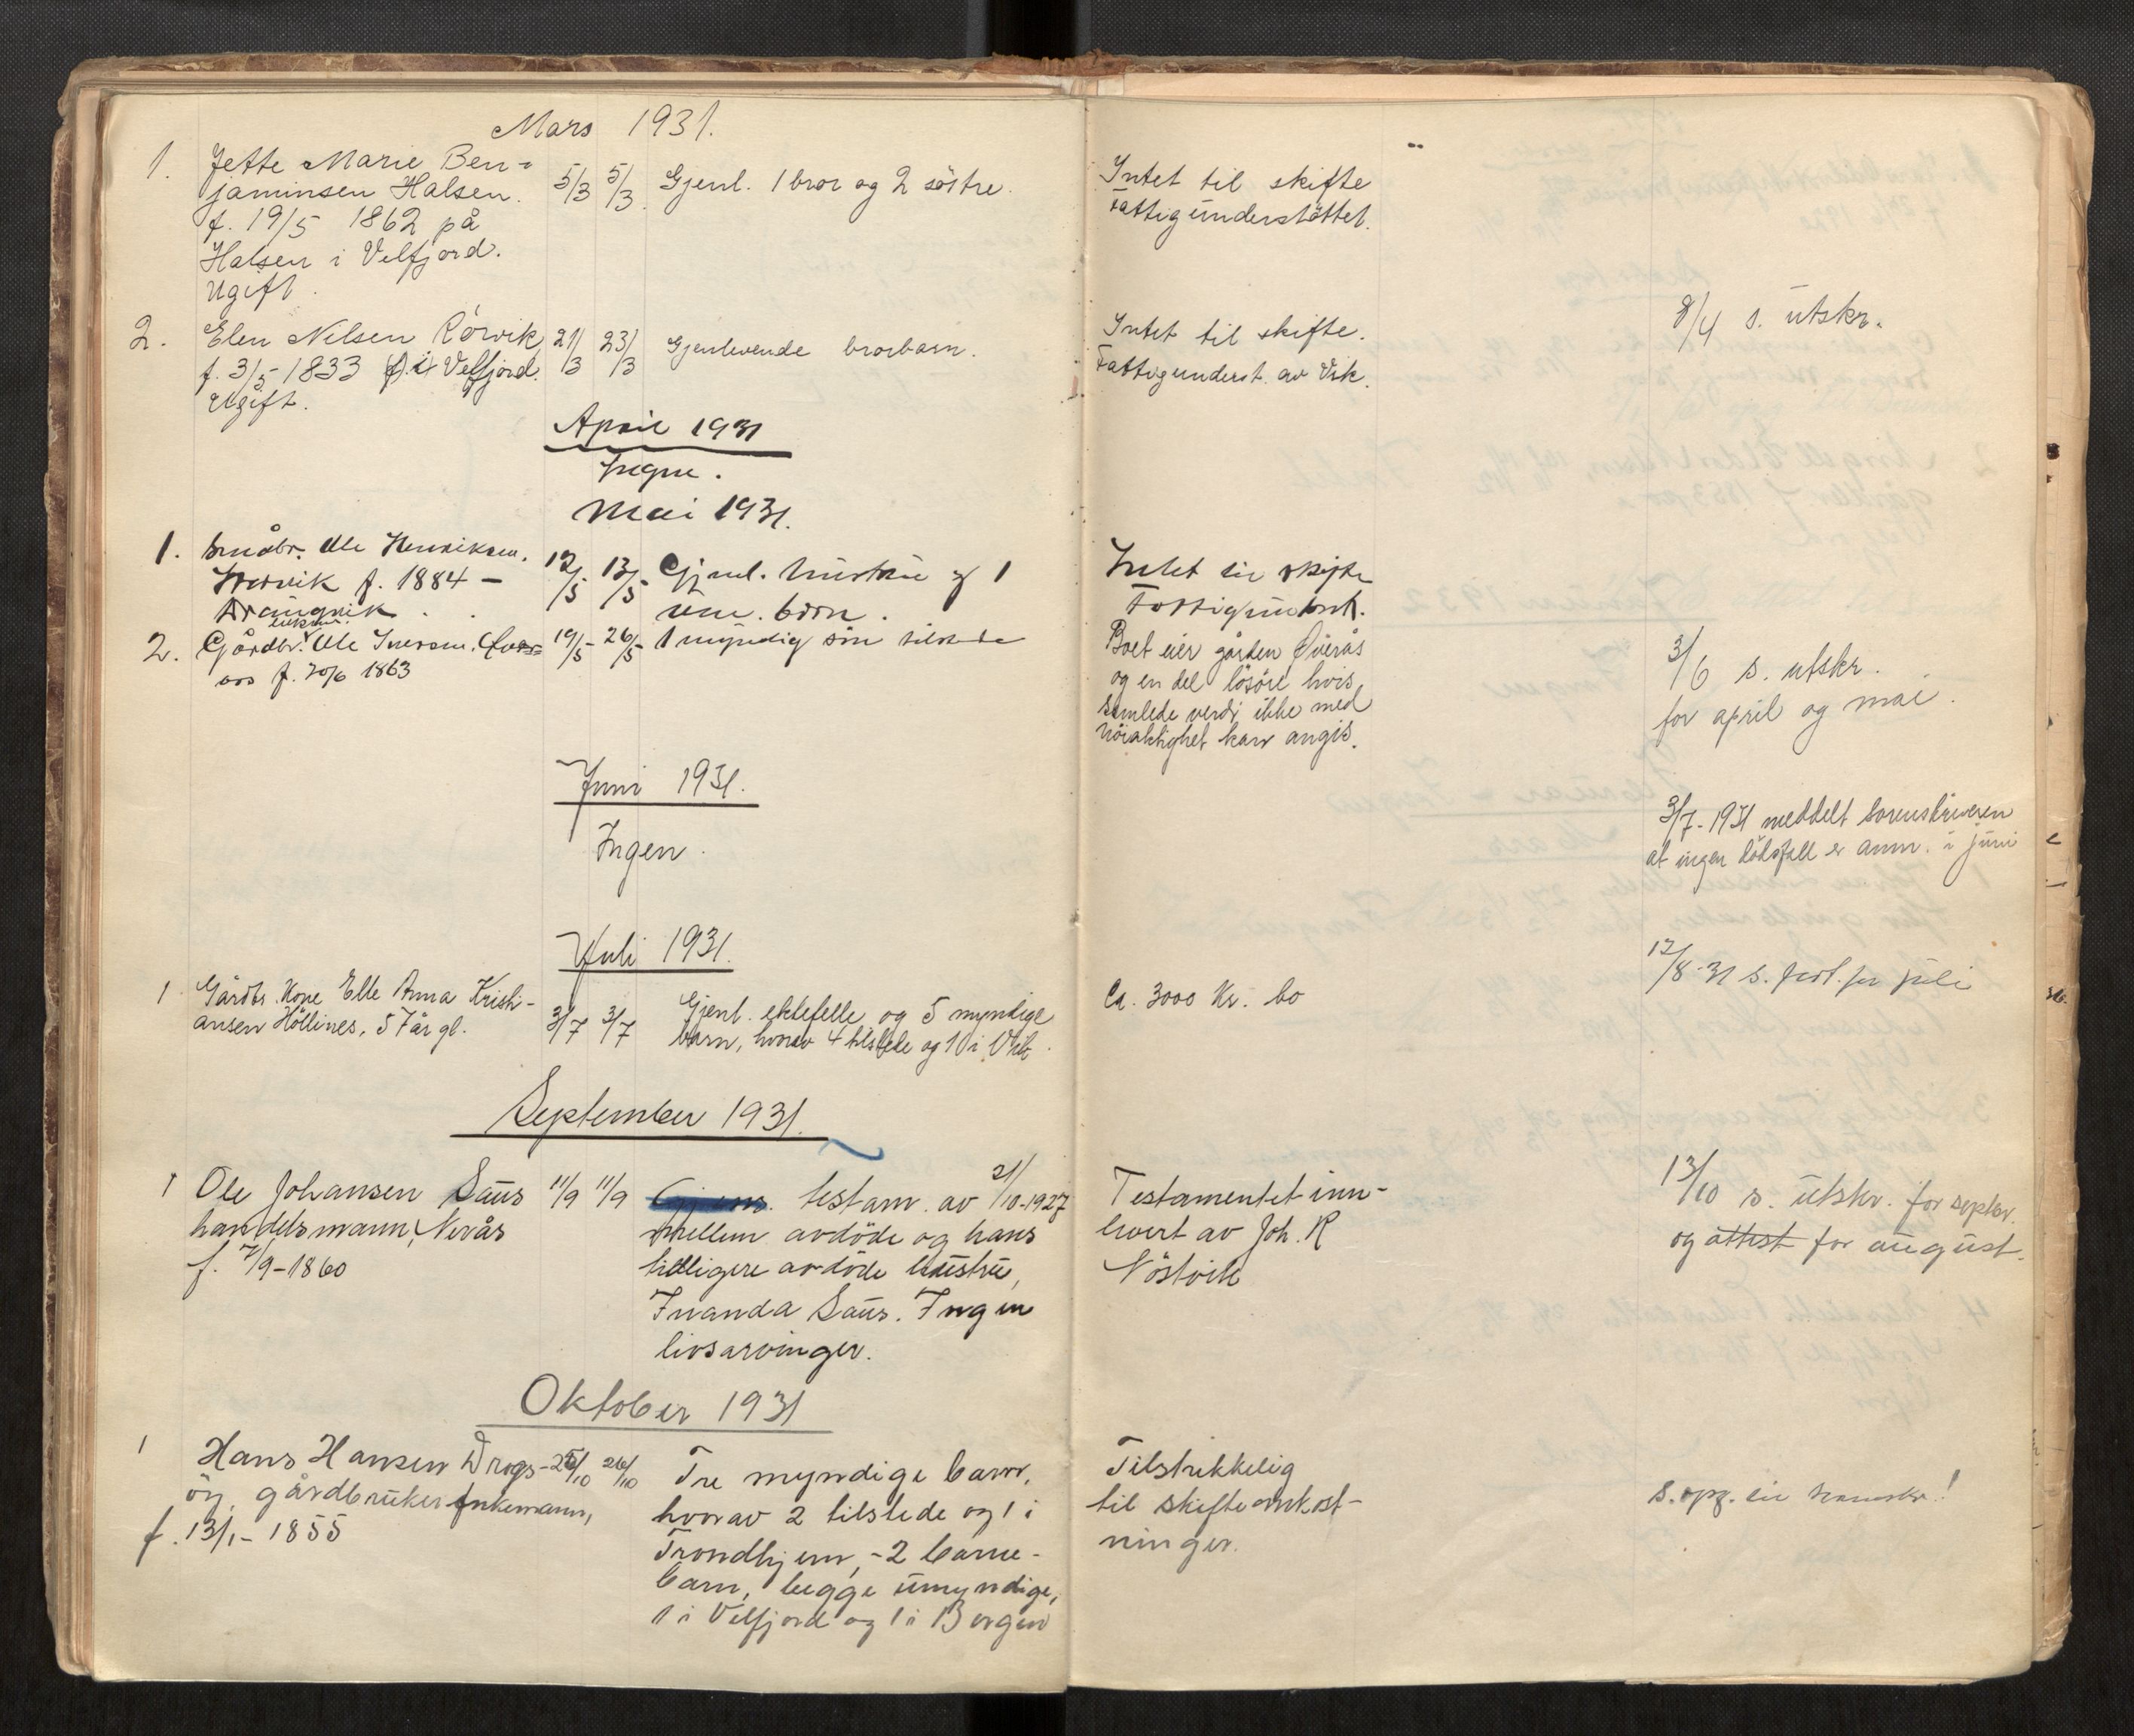 Mars 1931.
1. Jette Marie Ben-
jaminsen Halsen. 5/3 5/3 Gjenl. 1 bror og 2 söstre.
f. 19/5 1862 på
Halsen i Velfjord.
Ugift.
Intet til skifte
Fattigunderstöttet.
2. Elen Nilsen Rörvik 21/3 23/3 Gjenlevende brorbarn.
f. 3/5 1833 i Velfjord.
Ugift.
Intet til skifte.
Fattigunderst. av Vik.
8/4 s. utskr.
April 1931
Ingen.
Mai 1931.
1. Småbr. Ole Henriksen. 12/5 13/5 Gjenl. hustru og 1
f. 1884 — um. barn.
Intet til skifte
2. Gårdbr. Ole Iversen Över= 19/5 26/5 1 myndig sön tilstede
ås f. 20/6 1863
Boet eier gården Överås
og en del lösöre hvis
samlede verdi ikke med
nöiaktighet kan angis.
3/6 s. utskr.
for april og mai.
Juni 1931.
Ingen.
3/7-1931 meddelt sorenskriveren
at ingen dödsfall er anm. i juni
Juli 1931.
1 Gårdbr. kone Elle Anna Krist-
ansen Höllines, 57 år gl. 3/7 3/7 Gjenl. ektefelle og 5 myndige
barn, hvorav 4 tilstede og 1 i Vik.
Ca. 3000 Kr. bo
12/8-31 s. for juli
September 1931.
1 Ole Johansen Saus 11/9 11/9 Gjens. testam. av 21/10-1927
handelsmann, Nevås mellem avdöde og hans
f. 7/9-1860 tidligere avdöde hustru,
Inanda Saus. Ingen
livsarvinger.
Testamentet inn-
levert av Joh. R
Nöstvik
13/10 s. utskr. for septbr.
og attest for august.
Oktober 1931
1 Hans Hansen Drogs- 25/10 26/10 Tre myndige barn,
öy, gårdbruker enkemann, hvorav 2 tilstede og 1 i
f. 13/1-1855 Trondhjem, -2 barne-
barn, begge umyndige,
1 i Velfjord og 1 i Bergen
Tilstrekkelig
til skifteomkost-
ninger.
s. opg.